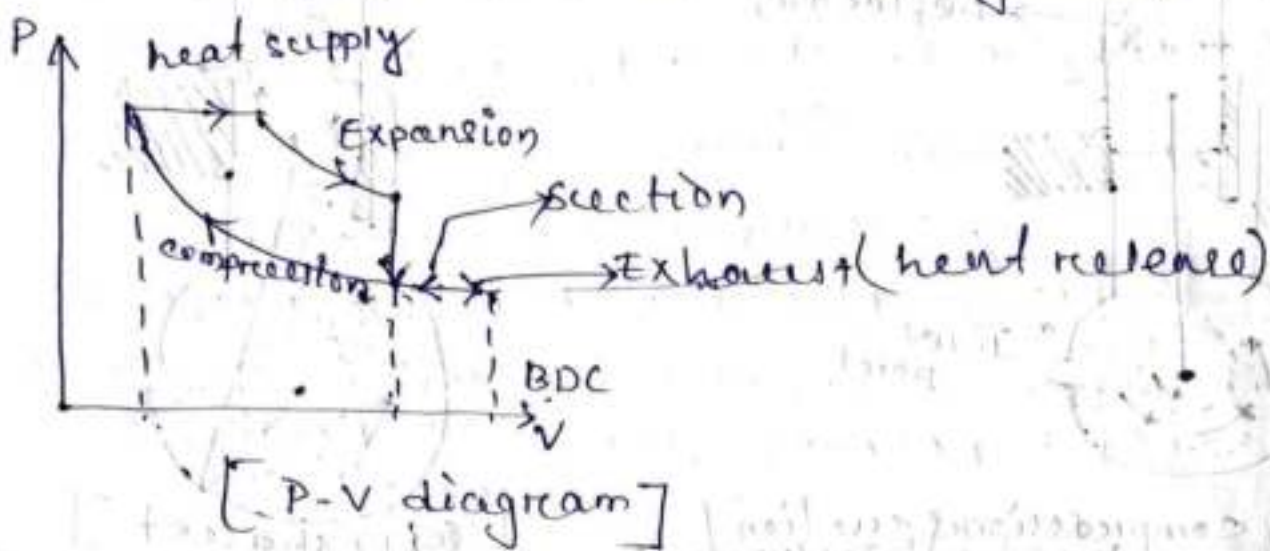 P
heat supply
Expansion
suction
compression
Exhaust (heat release)
BDC
V
[P-V diagram]